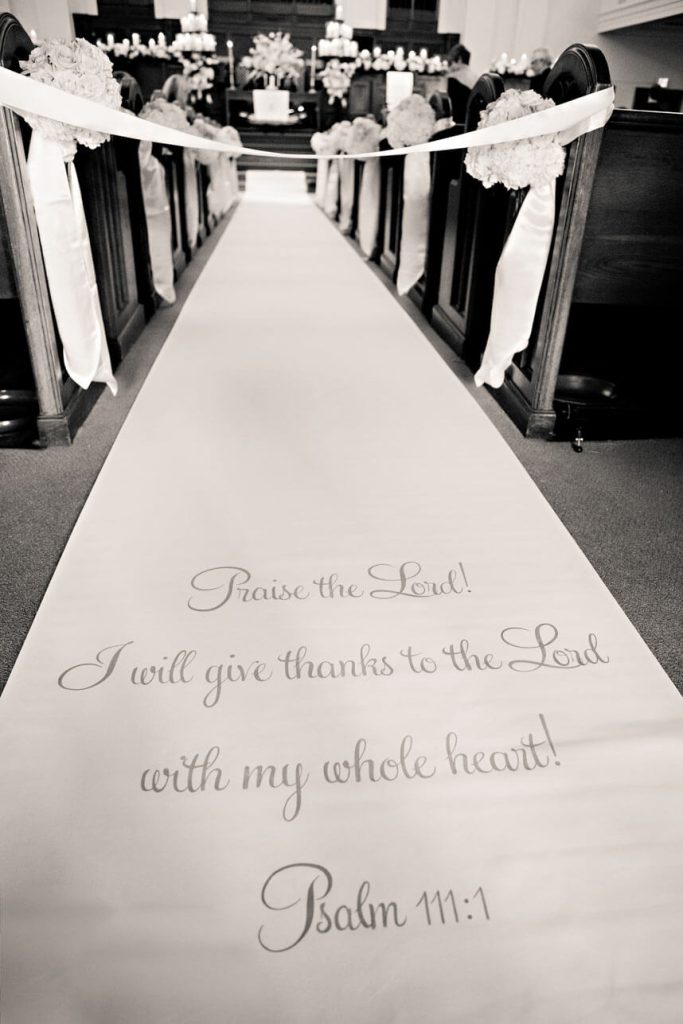 Praise the Lord!
I will give thanks to the Lord
with my whole heart!
Psalm 111:1